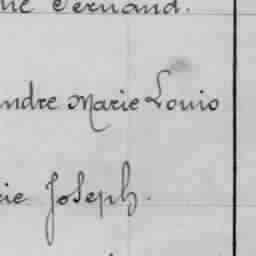 Fernand.
andre Marie Louis
rie Joseph.